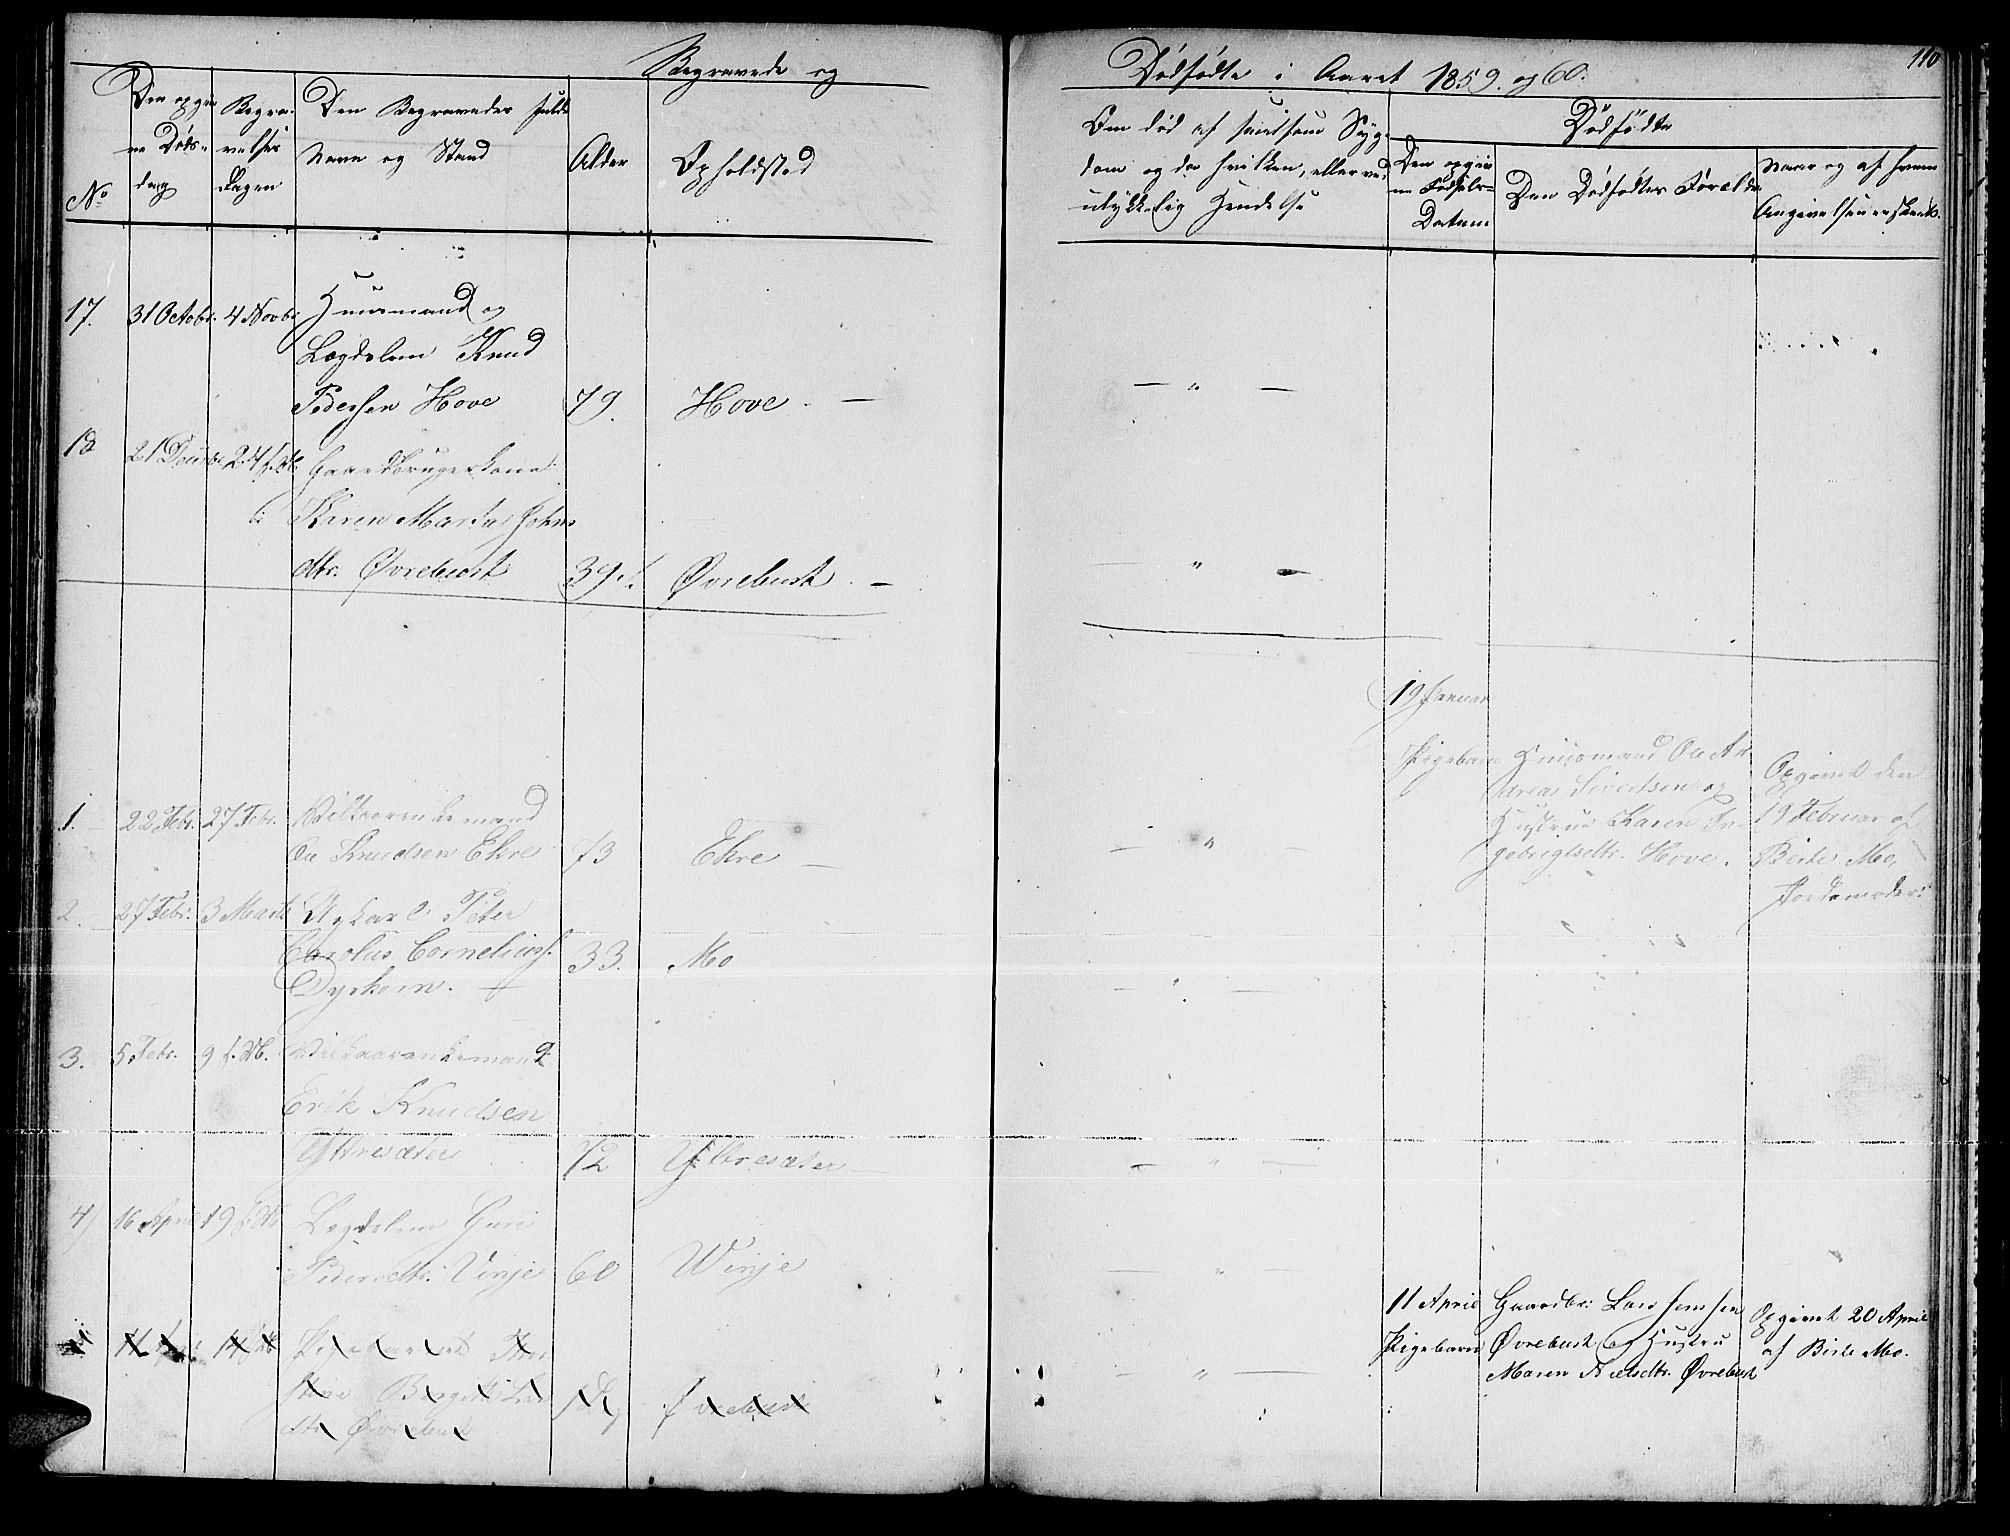 Begravede og
Dødfødte i Aaret 1859. og 60.
110
No
Den opgiv
ne Døds-
dag
Begra-
velses
Dagen
Den Begravedes fulde
Navn og Stand
Alder
Opholdsted
Om død af smitsom Syg-
dom og da hvilken, eller ved
ulykkelig Hendelse
Dødfødte
Den opgiv
ne Fødsels-
Datum
Den Dødfødtes Forældre
Naar og af hvem
Angivelsen er skeet.
17. 31 Octobr. 4 Novbr Huusmand og
Lægdslem Knud
Pedersen Hove 79. Hove. — — " —
18 21 Decembr 24 s. M. Gaardbrugerkone
Karen Marta Johns
dtr. Øvrebust 39 Øvrebust. — — " —
19 Januar
Pigebarn Huusmand Ole An
dreas Sivertsen og
Hustrue Karen In-
gebrigtsdtr. Hove.
Opgivet den
19 Februar af
Birte Mo,
Jordemoder.
1. 22 Febr. 27 Febr. Vilkaarenkemand
Ole Knudsen Ekre 73 Ekre — — " —
2. 27 Febr. 3 Marts Ungkarl Peter
Carolus Corneliuss.
Dyrkorn. — 33. Mo — " —
3. 5 Febr. 9 s. M. Vilkaarenkemand
Erik Knudsen
Yttresæter 72 Yttresæter — — " —
4) 16 April 19 s. M. Lægdslem Guri
Pedersdtr. Vinje 60 Winje — " —
11 April
Pigebarn
Gaardbr: Lars Jensen
Øvrebust og Hustru
Maren Nielsdtr. Øvrebust
Opgivet 20 April
af Birte Mo.
— " —